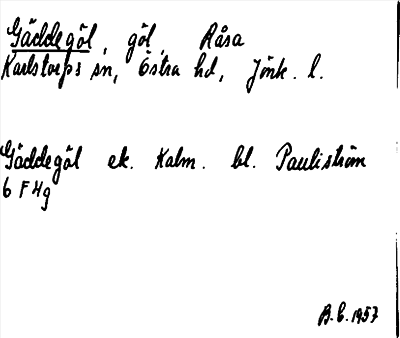 Gäddegöl, göl, Råsa
Karlstorps sn, Östra hd, Jönk. l.
Gäddegöl ek. Kalm. bl. Pauliström
6 F 4g
B.C. 1957